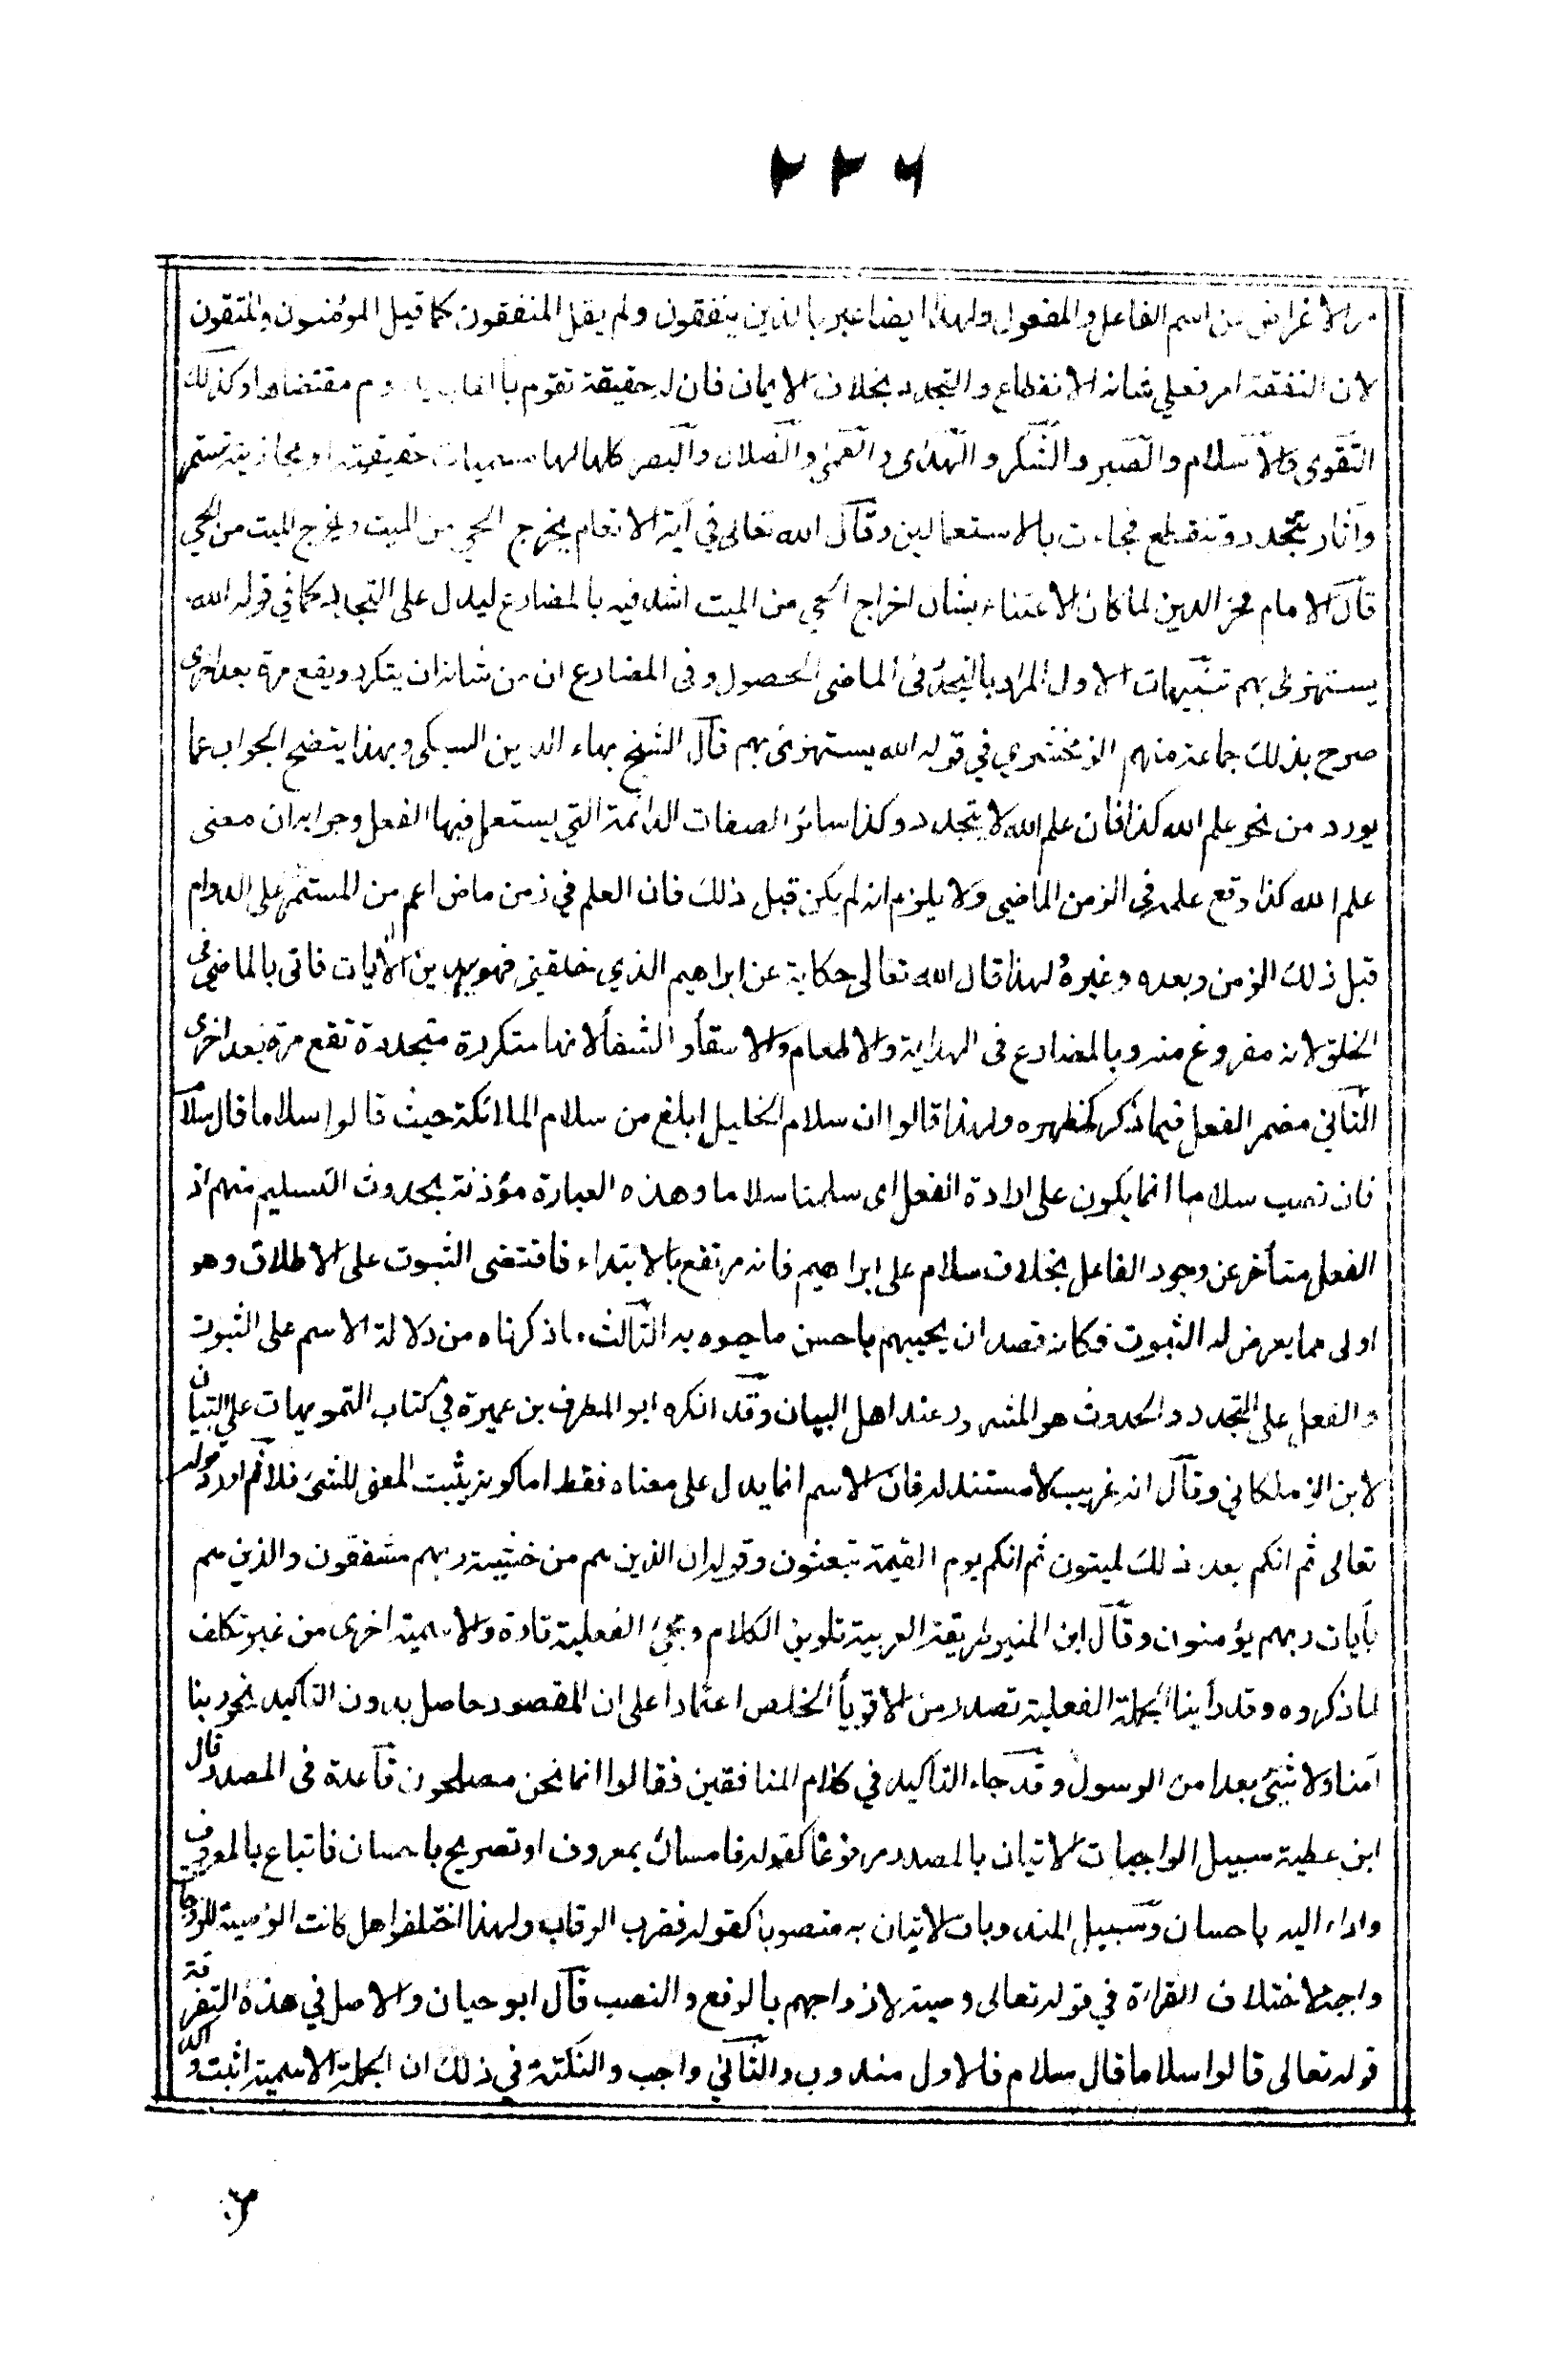 ٢٢٦
من الاغراض من اسم الفاعل والمفعول ولهذا ايضا عبر بالذين ينفقون ولم يقل المنفقون كما قيل المؤمنون والمتقون
لان النفقة امر فعلي شانه الانقطاع والتجدد بخلاف الايمان فان له حقيقة تقوم بالقلب يدوم مقتضاها وكذلك
التقوى والاسلام والصبر والشكر والهدى والعمى والضلال والبصر كلها لها مسميات حقيقية او مجازية تستمر
وآثار تتجدد وتنقطع فجاءت بالاستعمالين وقال الله تعالى في آية الانعام يخرج الحي من الميت ويخرج الميت من الحي
قال الامام فخر الدين لما كان الاعتناء بشان اخراج الحي من الميت اشد فيه بالمضارع ليدل على التجدد كما في قوله الله
يستهزئ بهم تنبيهات الاول المراد بالتجدد في الماضى الحصول وفى المضارع ان من شانه ان يتكرر ويقع مرة بعد اخرى
صرح بذلك جماعة منهم الزمخشري في قوله الله يستهزئ بهم قال الشيخ بهاء الدين السبكى وبهذا يتضح الجواب عما
يورد من نحو علم الله كذا فان علم الله لا يتجدد وكذا سائر الصفات الدائمة التي يستعمل فيها الفعل وجوابه ان معنى
علم الله كذا وقع علمه في الزمن الماضي ولا يلزم انه لم يكن قبل ذلك فان العلم في زمن ماض اعم من المستمر على الدوام
قبل ذلك الزمن وبعده وغيره لهذا قال الله تعالى حكاية عن ابراهيم الذي خلقني فهو يهدين الآيات فاتى بالماضي فى
الخلق لانه مفروغ منه وبالمضارع فى الهداية والاطعام والاسقاء والشفاء لانها متكررة متجددة تقع مرة بعد اخرى
الثاني مضمر الفعل فيما ذكر كمظهره ولهذا قالوا ان سلام الخليل ابلغ من سلام الملائكة حيث قالوا سلاما قال سلام
فان نصب سلاما انما يكون على ارادة الفعل اى سلمنا سلاما وهذه العبارة مؤذنة بحدوث التسليم منهم اذ
الفعل متأخر عن وجود الفاعل بخلاف سلام على ابراهيم فانه مرتفع بالابتداء فاقتضى الثبوت على الاطلاق وهو
اولى مما يعرض له الثبوت فكانه قصد ان يحييهم باحسن ما حيوه به الثالث ما ذكرناه من دلالة الاسم على الثبوت
والفعل على التجدد والحدوث هو المشهور عند اهل البيان وقد انكره ابو المطرف بن عميرة في كتاب التمويهات على التبيان
لابن الزملكاني وقال انه غريب لا مستند له فان الاسم انما يدل على معناه فقط اما كونه يثبت المعنى للشئ فلا ثم اورد قوله
تعالى ثم انكم بعد ذلك لميتون ثم انكم يوم القيمة تبعثون وقوله ان الذين هم من خشية ربهم مشفقون والذين هم
بآيات ربهم يؤمنون وقال ابن المنير طريقة العربية تلوين الكلام ومجئ الفعلية تارة والاسمية اخرى من غير تكلف
لما ذكروه وقد رأينا الجملة الفعلية تصدر من الاقوياء الخلص اعتمادا على ان المقصود حاصل بدون التاكيد نحو ربنا
آمنا ولا شئ بعد امن الرسول وقد جاء التاكيد في كلام المنافقين فقالوا انما نحن مصلحون قاعدة فى المصدر قال
ابن عطية سبيل الواجبات الاتيان بالمصدر مرفوعا كقوله فامساك بمعروف او تصريح باحسان فاتباع بالمعروف
واداء اليه باحسان وسبيل المندوبات الاتيان به منصوبا كقوله فضرب الرقاب ولهذا اختلفوا هل كانت الوصية للزوجات
واجبة لاختلاف القراءة في قوله تعالى وصية لازواجهم بالرفع والنصب قال ابو حيان والاصل في هذه التفرقة
قوله تعالى قالوا سلاما قال سلام فالاول مندوب والثاني واجب والنكتة في ذلك ان الجملة الاسمية اثبت واكد